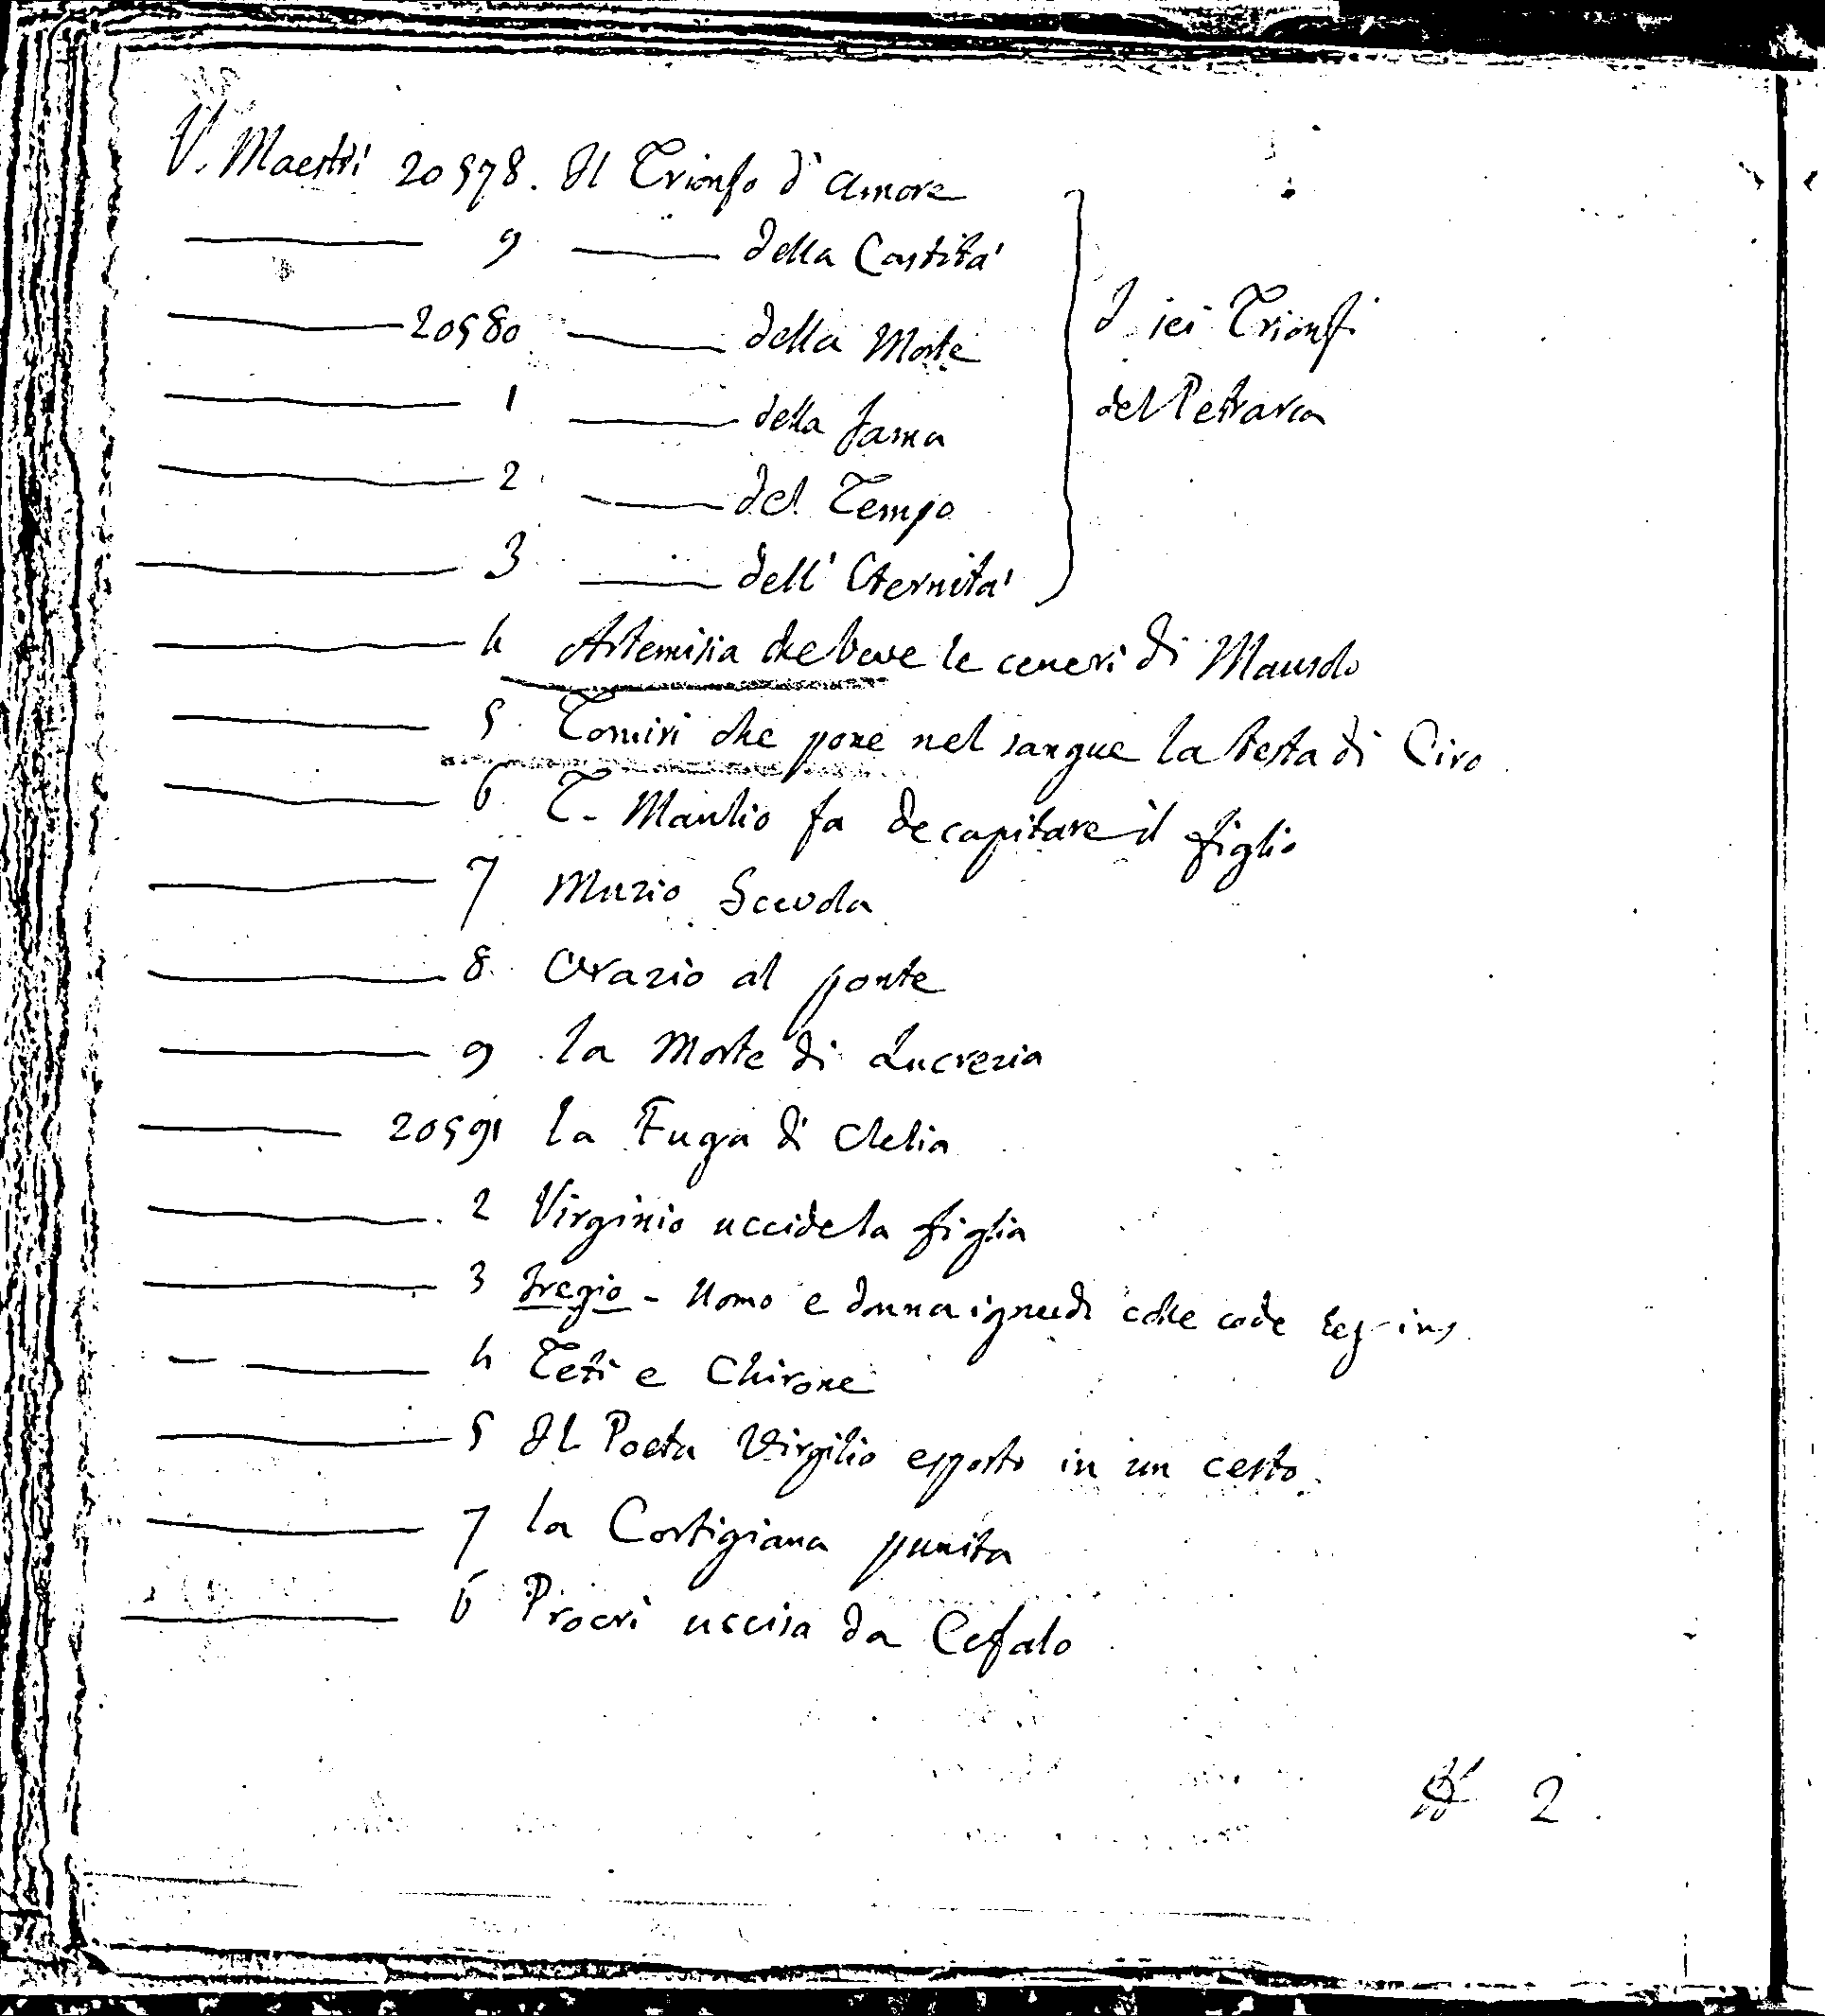 V. Maestri 20578. Il Trionfo d'Amore
9 della Castita'
20580 della Morte
I sei Trionfi
1 della fama
del Petrarca
2 del Tempo
3 dell' Eternita'
4 Artemisia che beve le ceneri di Mausolo
5 Tomiri che pone nel sangue la testa di Ciro
6 T. Manlio fa decapitare il figlio
7 Muzio Scevola
8 Orazio al ponte
9 la Morte di Lucrezia
20591 la Fuga di Clelia
2 Virginio uccide la figlia
3 fregio - Uomo e donna ignudi colle code
4 Teti e Chirone
5 Il Poeta Virgilio esposto in un cesto
7 la Cortigiana punita
6 Procri uccisa da Cefalo
2